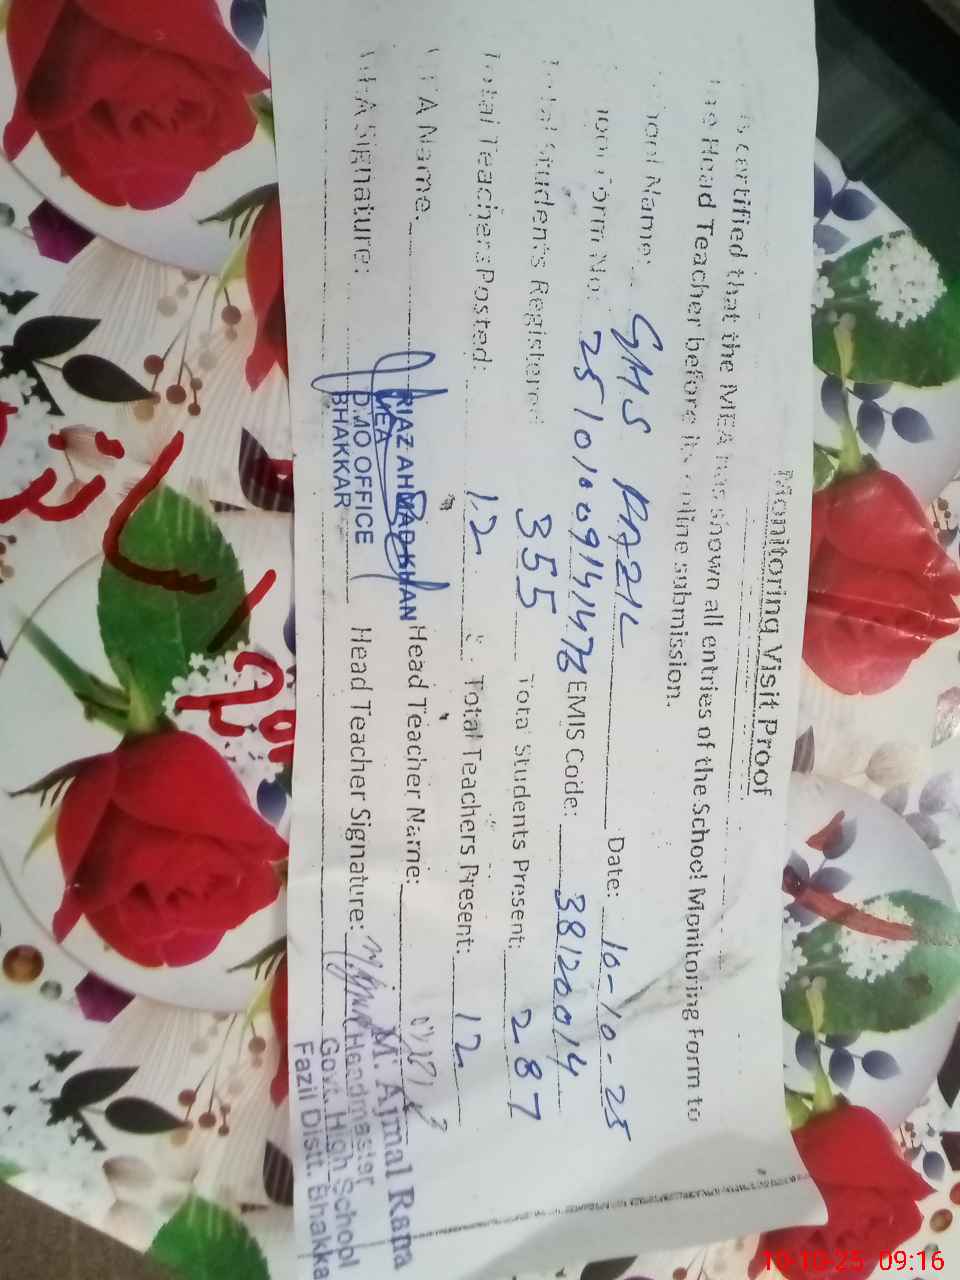 Monitoring Visit Proof
is certified that the MEA has shown all entries of the School Monitoring Form to
the Head Teacher before its online submission.
School Name: GHS FAZIL Date: 10-10-25
EMIS Code: 38120014
Total Students Registered 355 Total Students Present: 287
Total Teachers Posted: 12 Total Teachers Present: 12
MEA Name. RIAZ AHMAD KHAN Head Teacher Name: M. Ajmal Rana
MEA Signature: MEA Head Teacher Signature: Headmaster
D.M.O OFFICE Govt. High School
BHAKKAR Fazil Distt. Bhakka
10-10-25 09:16